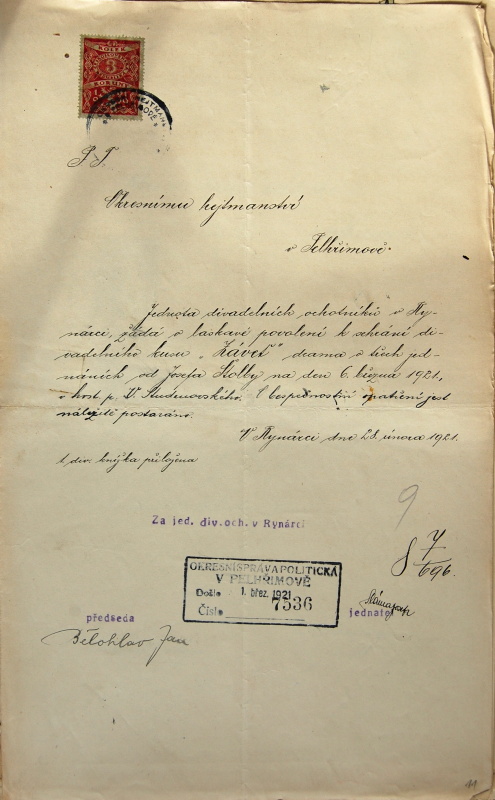 KOLEK
3
KORUNY
P. T.
Okresnímu hejtmanství
v Pelhřimově.
Jednota divadelních ochotníků v Ry-
nárci, žádá o laskavé povolení k sehrání di-
vadelního kusu „Závěť" drama o třech jed-
náních od Josefa Štolby na den 6. března 1921,
v host. p. V. Studenovského. O bezpečnostní opatření jest
náležitě postaráno.
V Rynárci dne 28. února 1921.
1 div. knížka přiložena
9
Za jed. div. och. v Rynárci
8 7/696.
OKRESNÍ SPRÁVA POLITICKÁ
V PELHŘIMOVĚ
Došlo 1. břez. 1921
Číslo 7536
předseda
jednatel
Bělohlav Jan
11